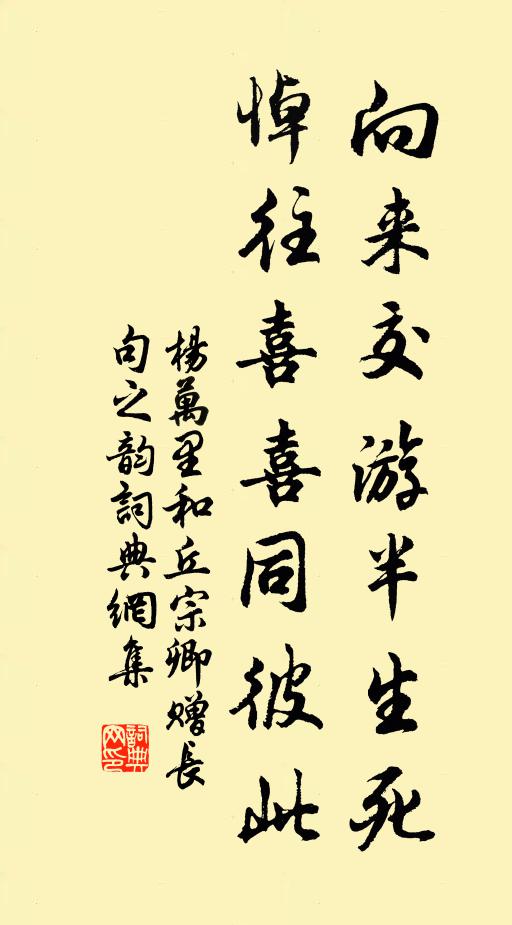 向来交游半生死
悼往喜喜同彼此
楊萬里和丘宗卿贈長
句之韵詞典網集
詞典网印